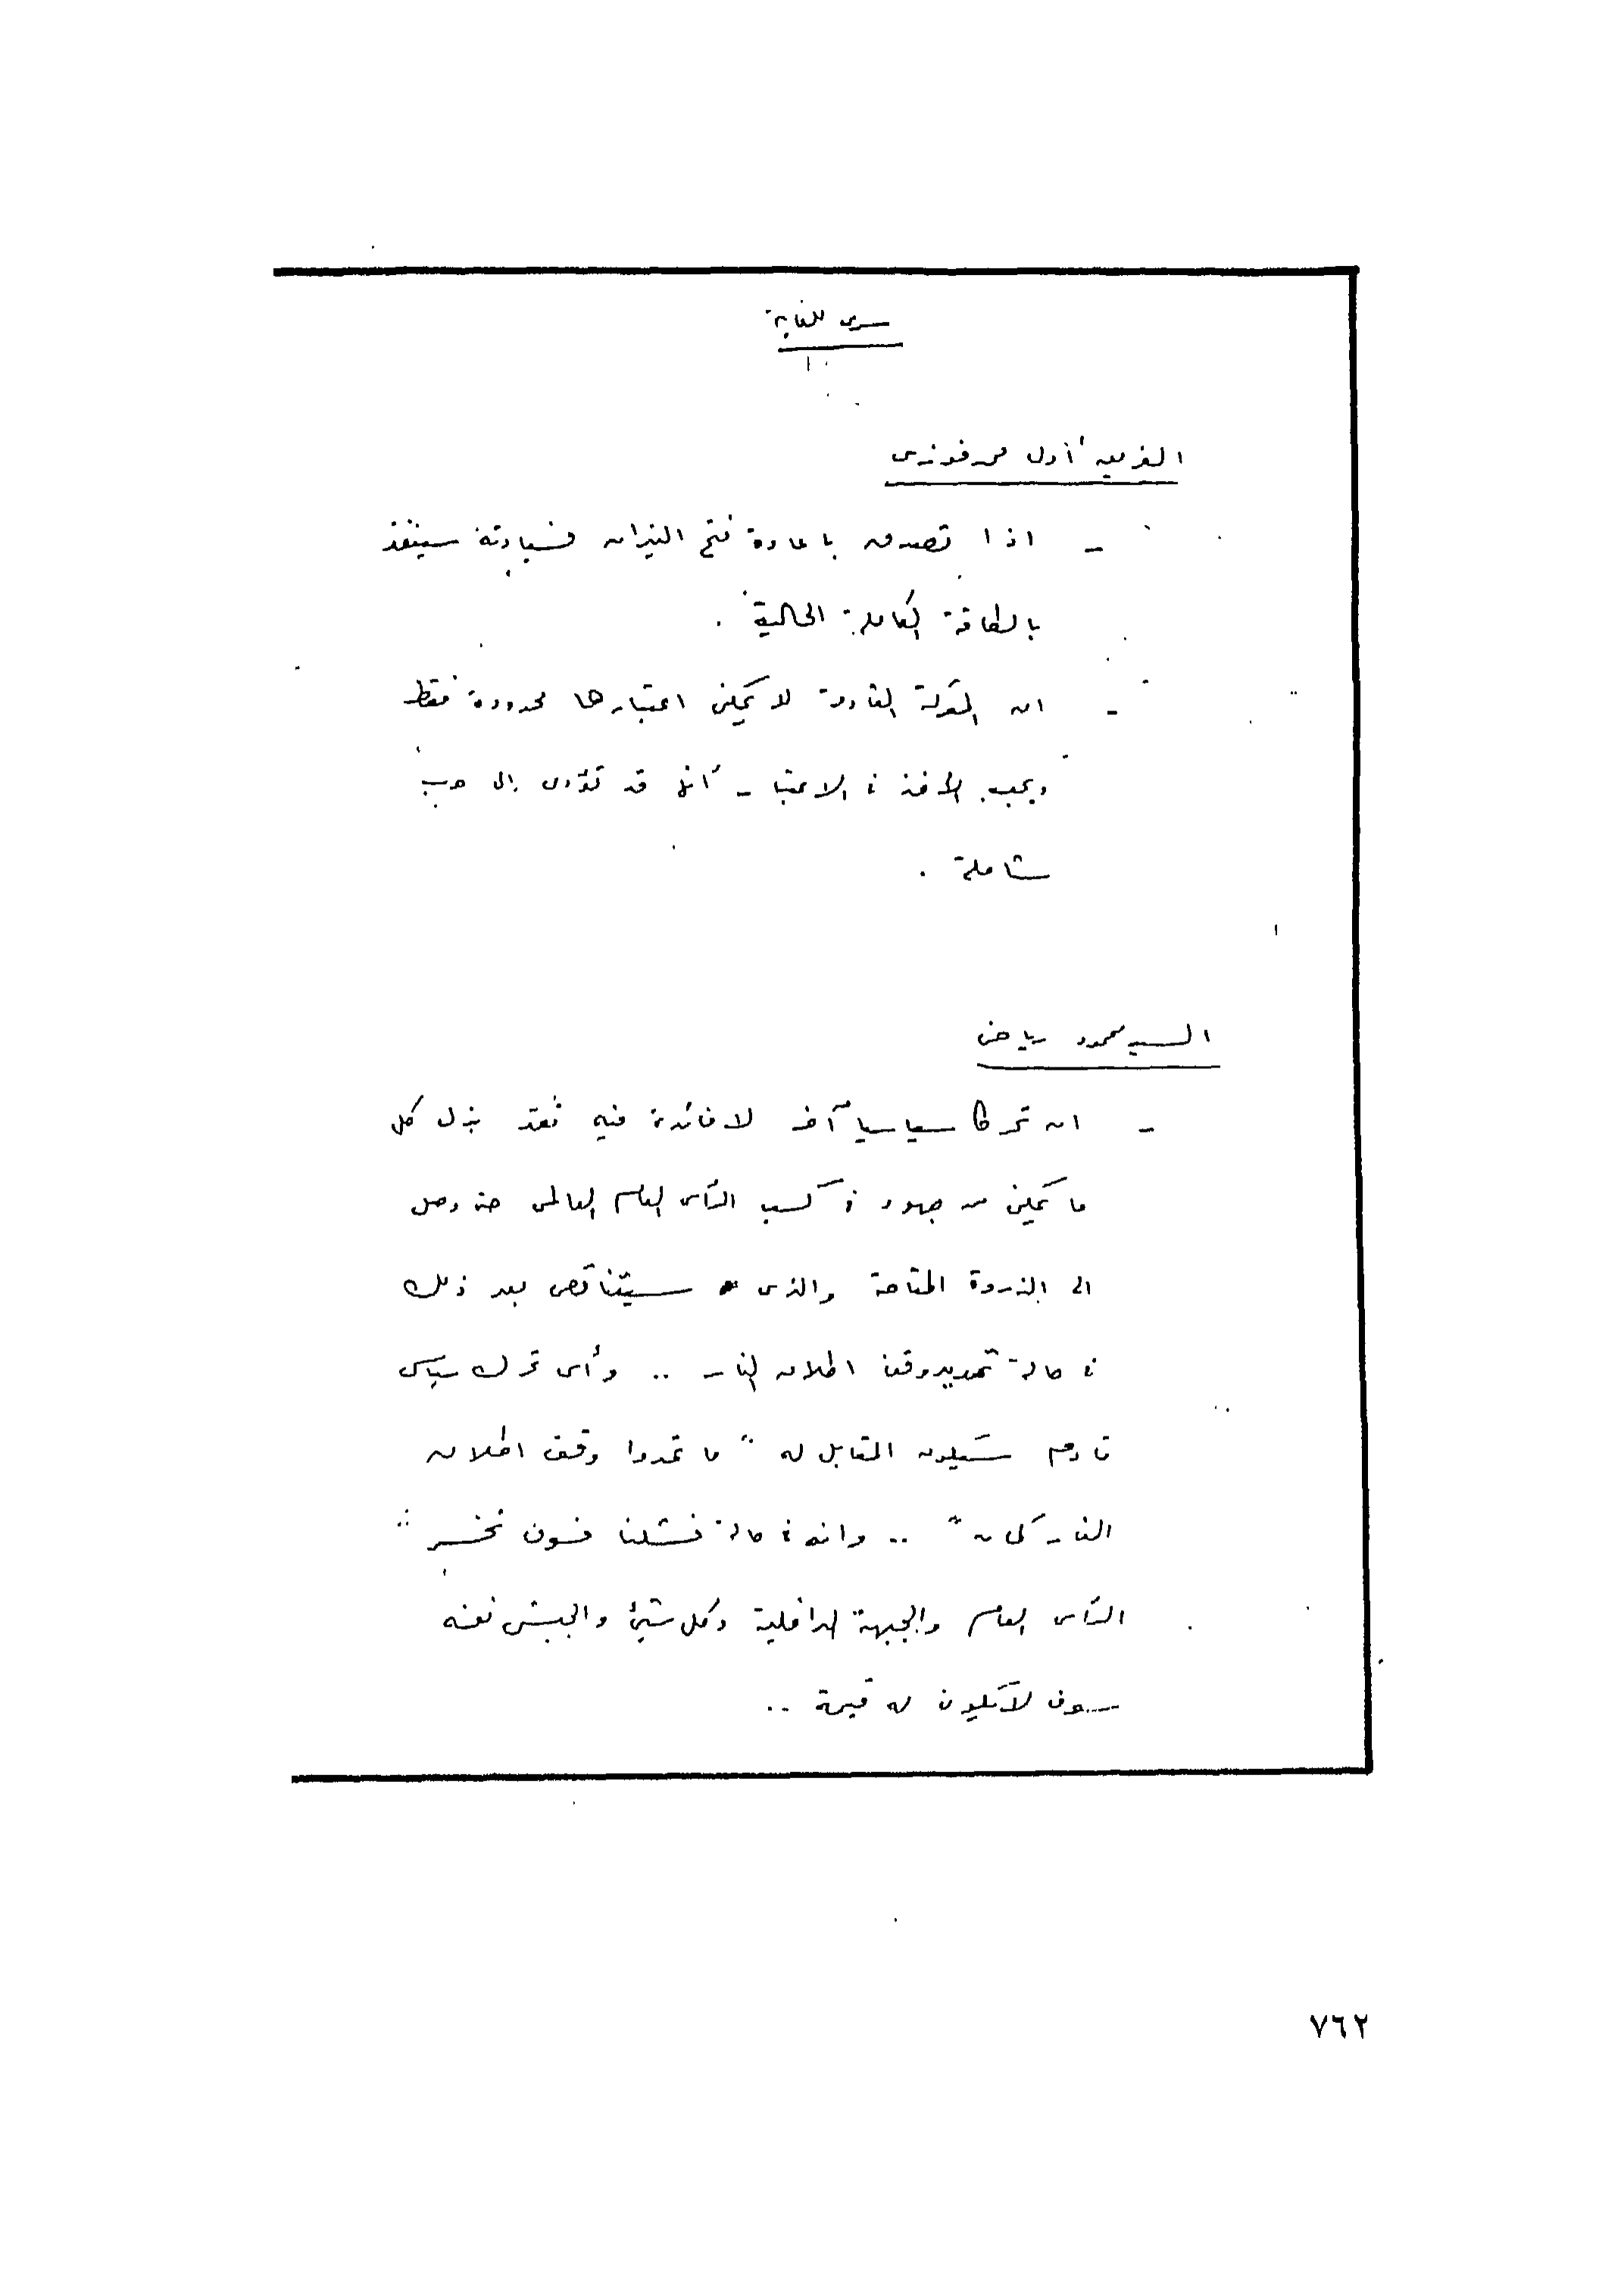 سرى للغاية
الفريق أول محمد فوزى
- اذا تصدق باعادة فتح النيران فسيادته سينفذ
بالطاقة الكاملة الحالية .
- ان المعركة القادمة لا يمكن اعتبارها محدودة فقط
ويجب الأخذ فى الاعتبار أنها قد تؤدى إلى حرب
شاملة .
السيد محمود رياض
- ان تحركا سياسيا آخر لا فائدة فيه فقد بذل كل
ما يمكن من جهود فى كسب الرأى العام العالمى حتى وصل
الى الذروة المتاحة والذى سيتناقص بعد ذلك
فى حالة تمديد وقف اطلاق النار .. وأى تحرك سياسى
قادم سيكون المقابل له " ما تمدوا وقف اطلاق
النار كمان " .. وانه فى حالة فشلنا فسوف نخسر
الرأى العام والجبهة الداخلية وكل شئ والجيش نفسه
سوف لا يكون له قيمة ..
٧٦٢